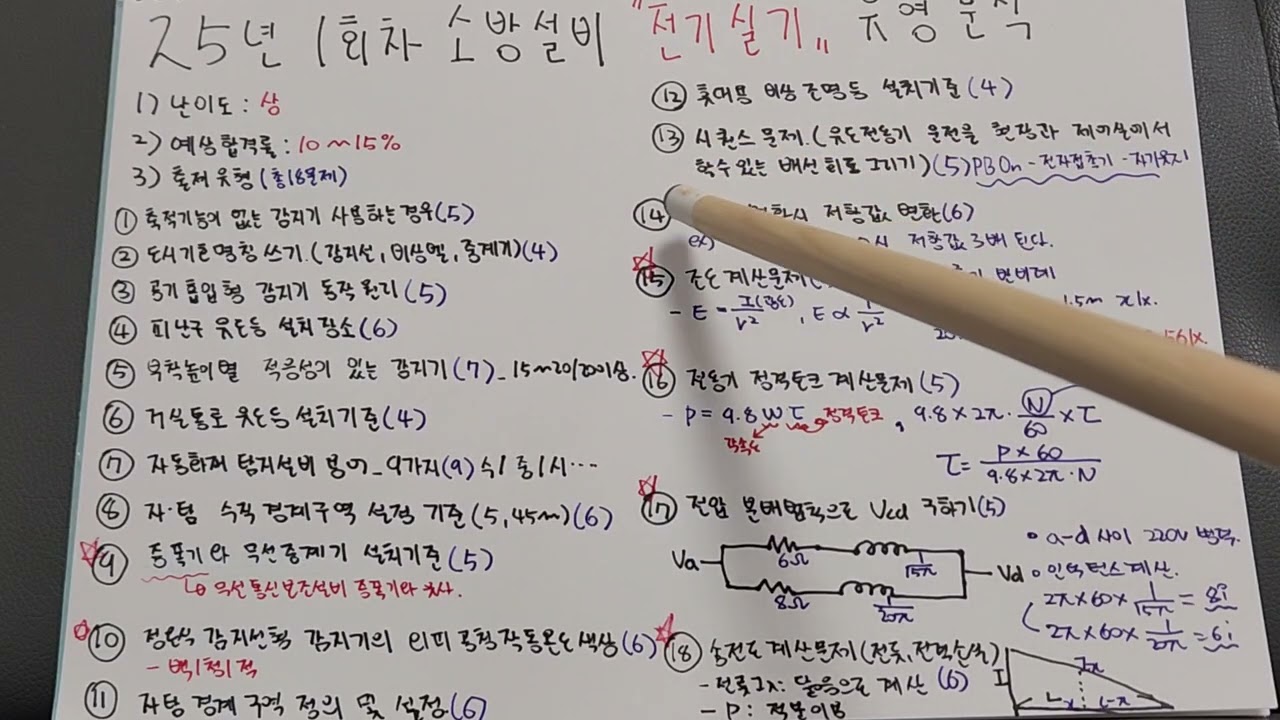 25년 1회차 소방설비 "전기실기" 유형분석
1) 난이도 : 상
2) 예상합격률 : 10~15%
3) 출제유형 (총18문제)
① 축적기능이 없는 감지기 사용하는경우(5)
② 도시기호명칭 쓰기.(감지선, 비상벨, 중계기)(4)
③ 공기흡입형 감지기 동작원리(5)
④ 피난구 유도등 설치장소(6)
⑤ 부착높이별 적응성이 있는 감지기(7)_15~20/20이상.
⑥ 거실통로 유도등 설치기준(4)
⑦ 자동화재 탐지설비 용어_9가지(9) 수/중/시…
⑧ 자·탐 수직경계구역 설정 기준(5,45m)(6)
⑨ 증폭기와 무선중계기 설치기준(5)
무선통신보조설비 증폭기와
⑩ 정온식 감지선형 감지기의 외피 공칭작동온도색상(6)
- 백/청/적
⑪ 자탐 경계구역 정의 및 설정(6)
⑫ 휴대용 비상조명등 설치기준(4)
⑬ 시퀀스문제.(유도전동기 운전을 현장과 제어실에서
할수있는 배선 회로 그리기)(5)PB On - 전자접촉기 - 자기유지
⑭ 저항값 변화(6)
ex) 시 저항값 3배 된다.
⑮ 조도계산문제(
반비례
- E = I(광도)/r², E ∝ 1/r²
⑯ 전동기 정격토크 계산문제(5)
- P = 9.8 W τ 정격토크, 9.8×2π·N/60×τ
각속도
τ = P×60 / 9.8×2π·N
⑰ 전압 분배법칙으로 Vcd 구하기(5)
Va 6Ω 1/15π Vd
8Ω 1/20π
∘ a-d 사이 220V
∘ 인덕턴스계산.
2π×60×1/15π = 8i
2π×60×1/20π = 6i
⑱ 송전도 계산문제(전류,전력손실)
- 전류 닮음으로 계산 (6)
- P : 적분이용